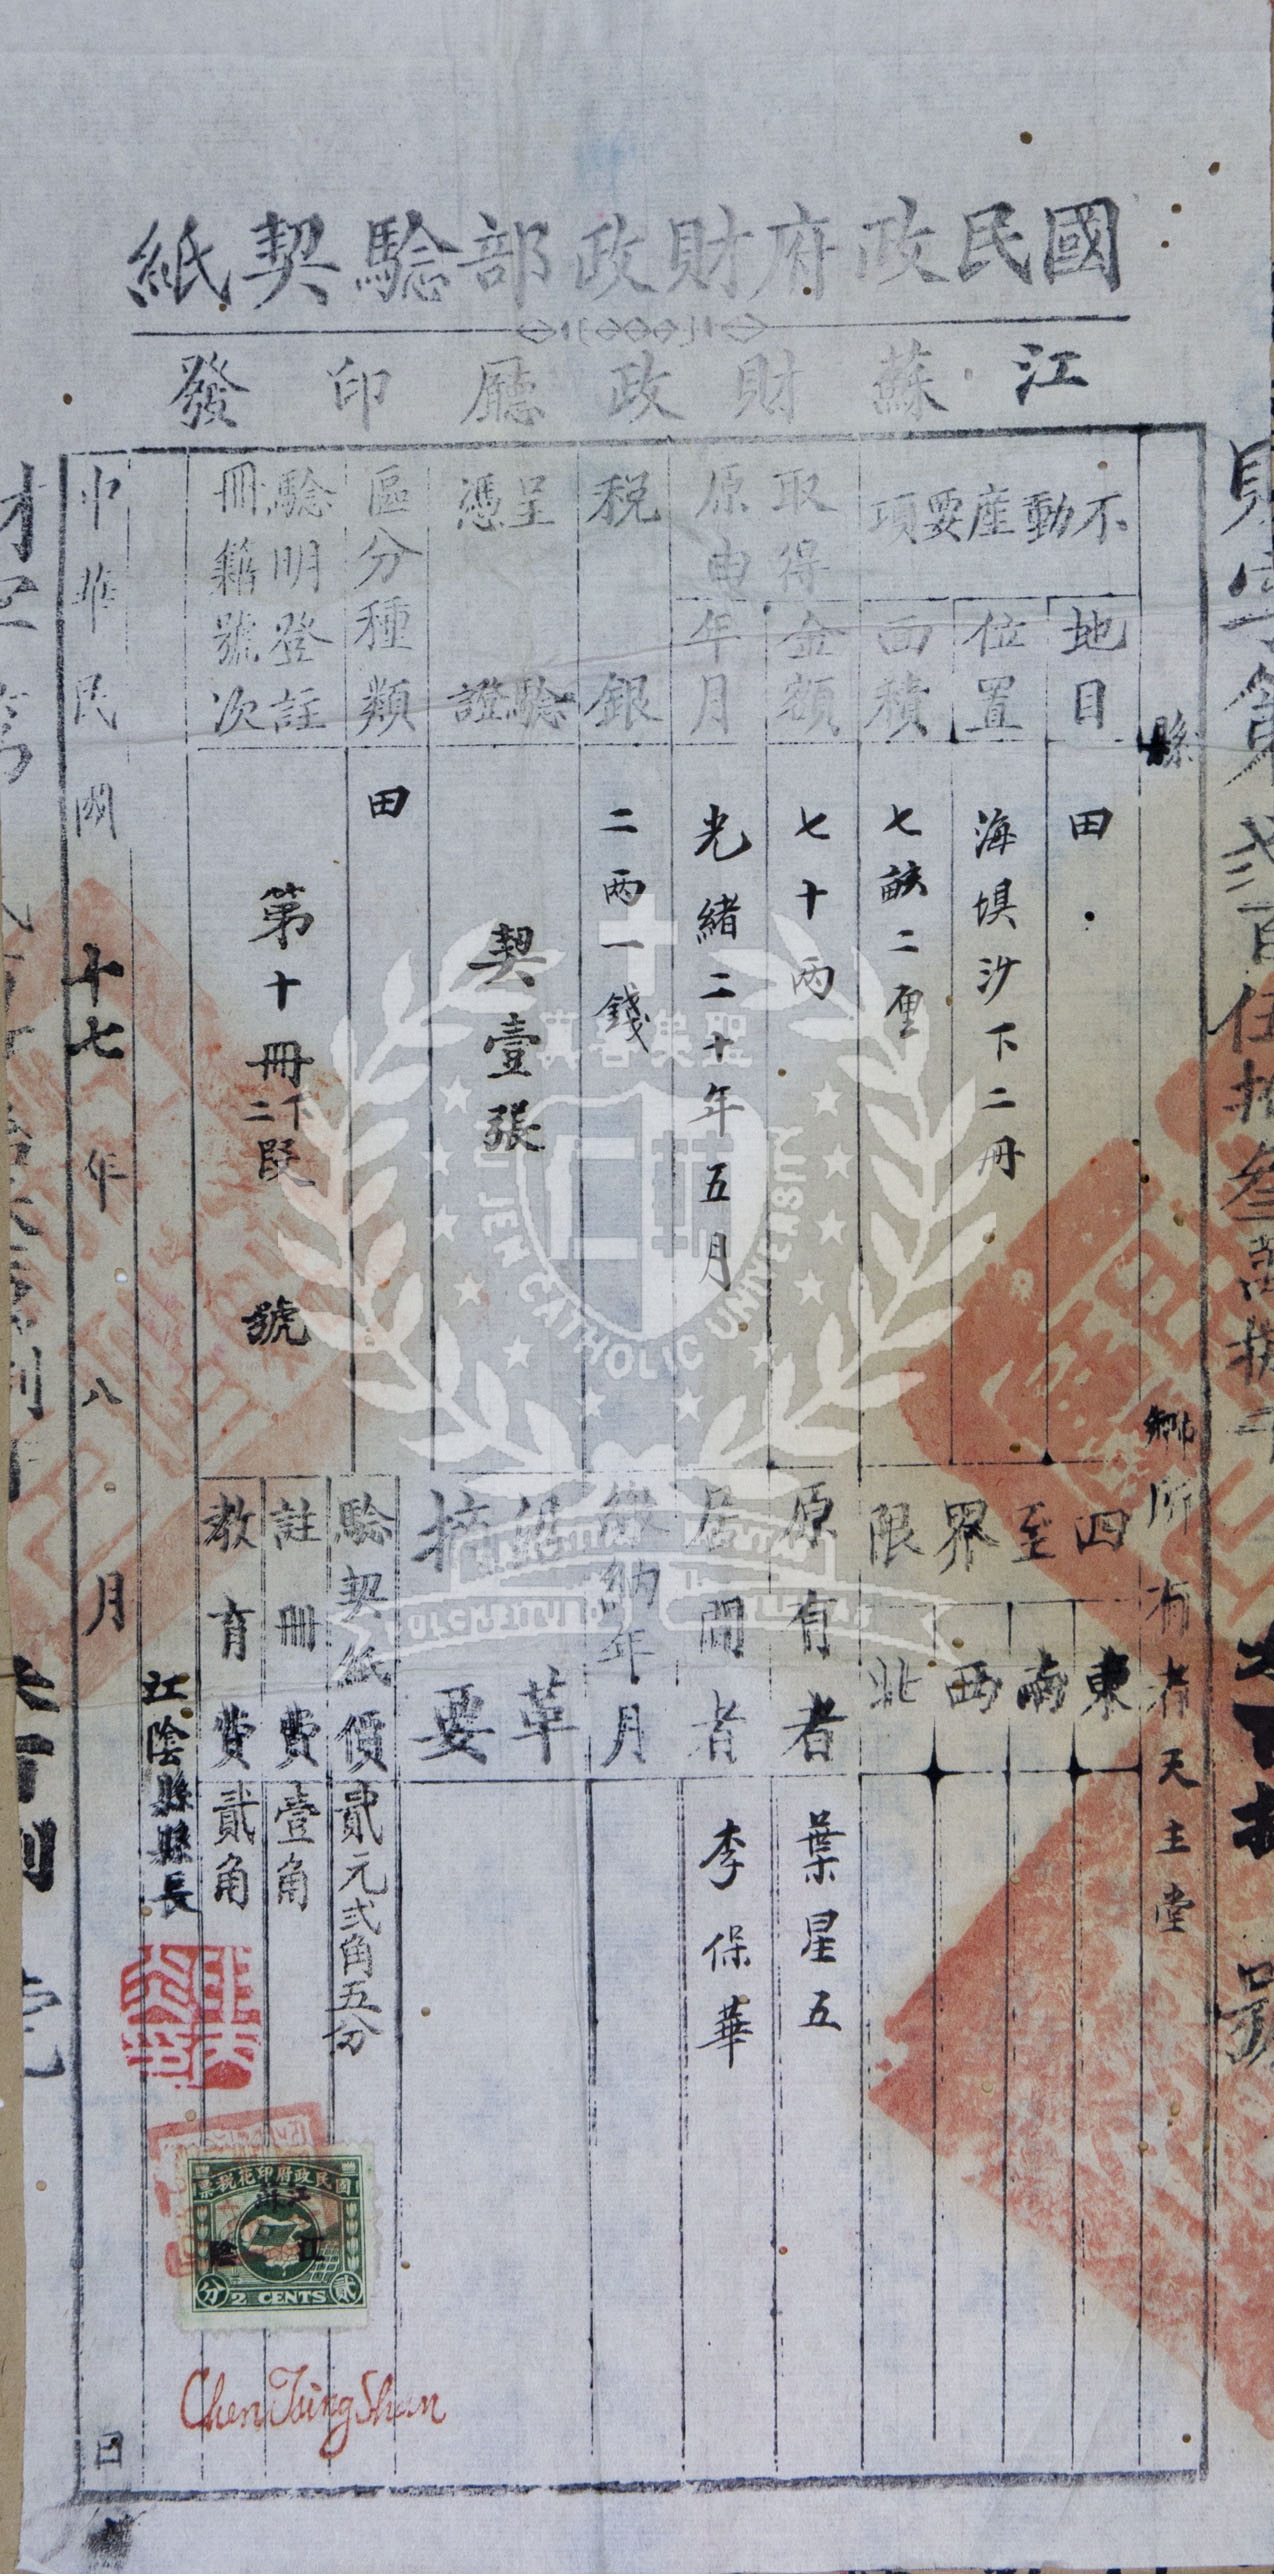 國民政府財政部驗契紙
江蘇財政廳印發
縣
鄉所有者天主堂
不動產要項
地目
田
位置
海壩沙下二冊
面積
七畝二厘
四至界限
東
南
西
北
取得金額
七十兩
原有者
葉星五
原由年月
光緒二十年五月
居間者
李保華
稅銀
二兩一錢
繳納年月
呈驗憑證
契壹張
沿革摘要
區分種類
田
驗契紙價貳元弍角五分
驗明登註冊籍號次
第十冊下二段
號
註冊費壹角
教育費貳角
江陰縣縣長
中華民國十七年八月
日
國民政府印花稅票
江陰
貳
2 CENTS
分
Chen Tsing Shan
聖美善真
FU JEN CATHOLIC UNIVERSITY